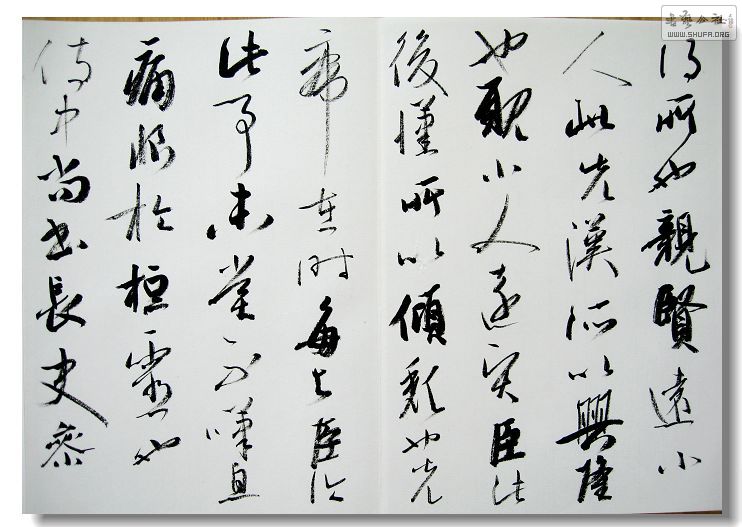 得所也親賢遠小
人此先漢所以興隆
也親小人遠賢臣此
後漢所以傾頹也先
帝在時每與臣論
此事未嘗不嘆息
痛恨於桓靈也
侍中尚書長史參
書藝公社
WWW.SHUFA.ORG